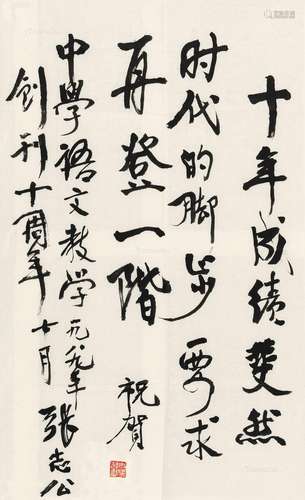 十年成绩斐然
时代的脚步要求
再登一階
祝贺
中學语文教学一九八九年
創刊十周年 十月 张志公